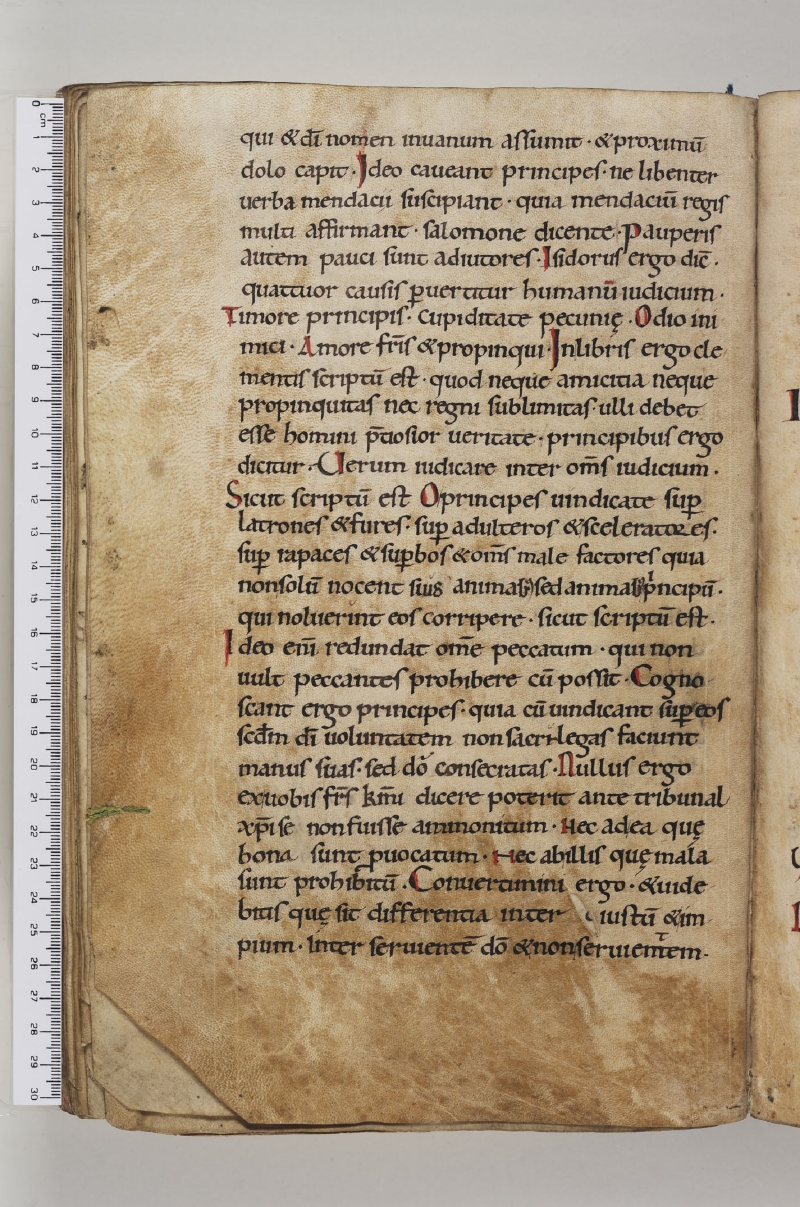 qui & dī nomen inuanum assumit · & proximū
dolo capit · Ideo caueant principes · ne libenter
uerba mendacii suscipiant · quia mendaciū regis
multi affirmant · salomone dicente · Pauperis
autem pauci sunt adiutores · Isidorus ergo diē ·
quattuor causis ꝑuertitur humanū iudicium ·
Timore principis · cupiditate pecunię · Odio ini
mici · Amore fr̄is & propinqui · Inlibris ergo cle
mentis scriptū est · quod neque amicitia neque
propinquitas nec regni sublimitas ulli debet
esse homini p̄tiosior ueritate · principibus ergo
dicitur · Uerum iudicare inter om̄s iudicium ·
Sicut scriptū est O principes uindicate suꝑ
latrones & fures · suꝑ adulteros & sceleratores ·
suꝑ rapaces & suꝑbos & om̄s male factores quia
nonsolū nocent suis animabꝰ sed animabꝰ pͥncipū ·
qui noluerint eos corripere · sicut scriptū est ·
Ideo enī redundat om̄e peccatum · qui non
uult peccantes prohibere cū possit · Cogno
scant ergo principes · quia cū uindicant suꝑ eos
scd̄m dī uoluntatem non sacrilegas faciunt
manus suas · sed dō consecratas · Nullus ergo
exuobis fr̄s km̄i dicere poterit ante tribunal
xp̄i se nonfuisse ammonitum · Nec adea quę
bona sunt ꝓuocatum · Nec abillis quę mala
sunt prohibitū · Conuertimini ergo · & uide
bitis quę sit differentia inter iustū & im
pium · Inter seruientē dō & nonseruientem ·